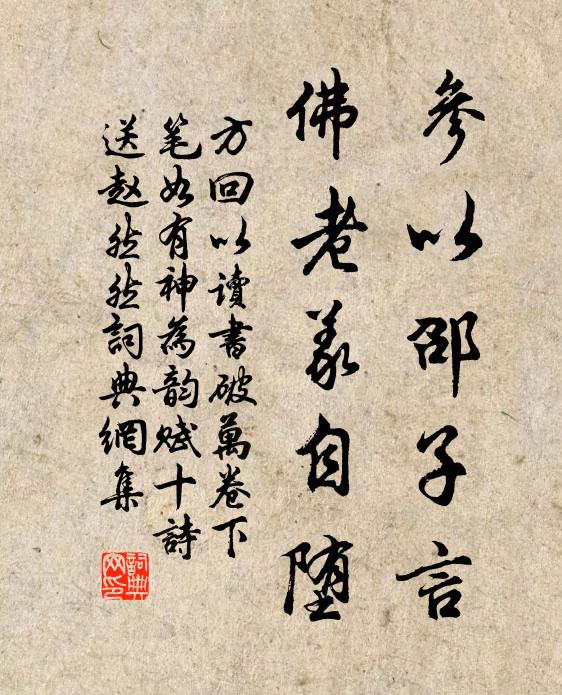 參以邵子言
佛老義自堕
方回以讀書破萬卷下
笔如有神為韵赋十詩
送赵然然詞典網集
詞典
网印